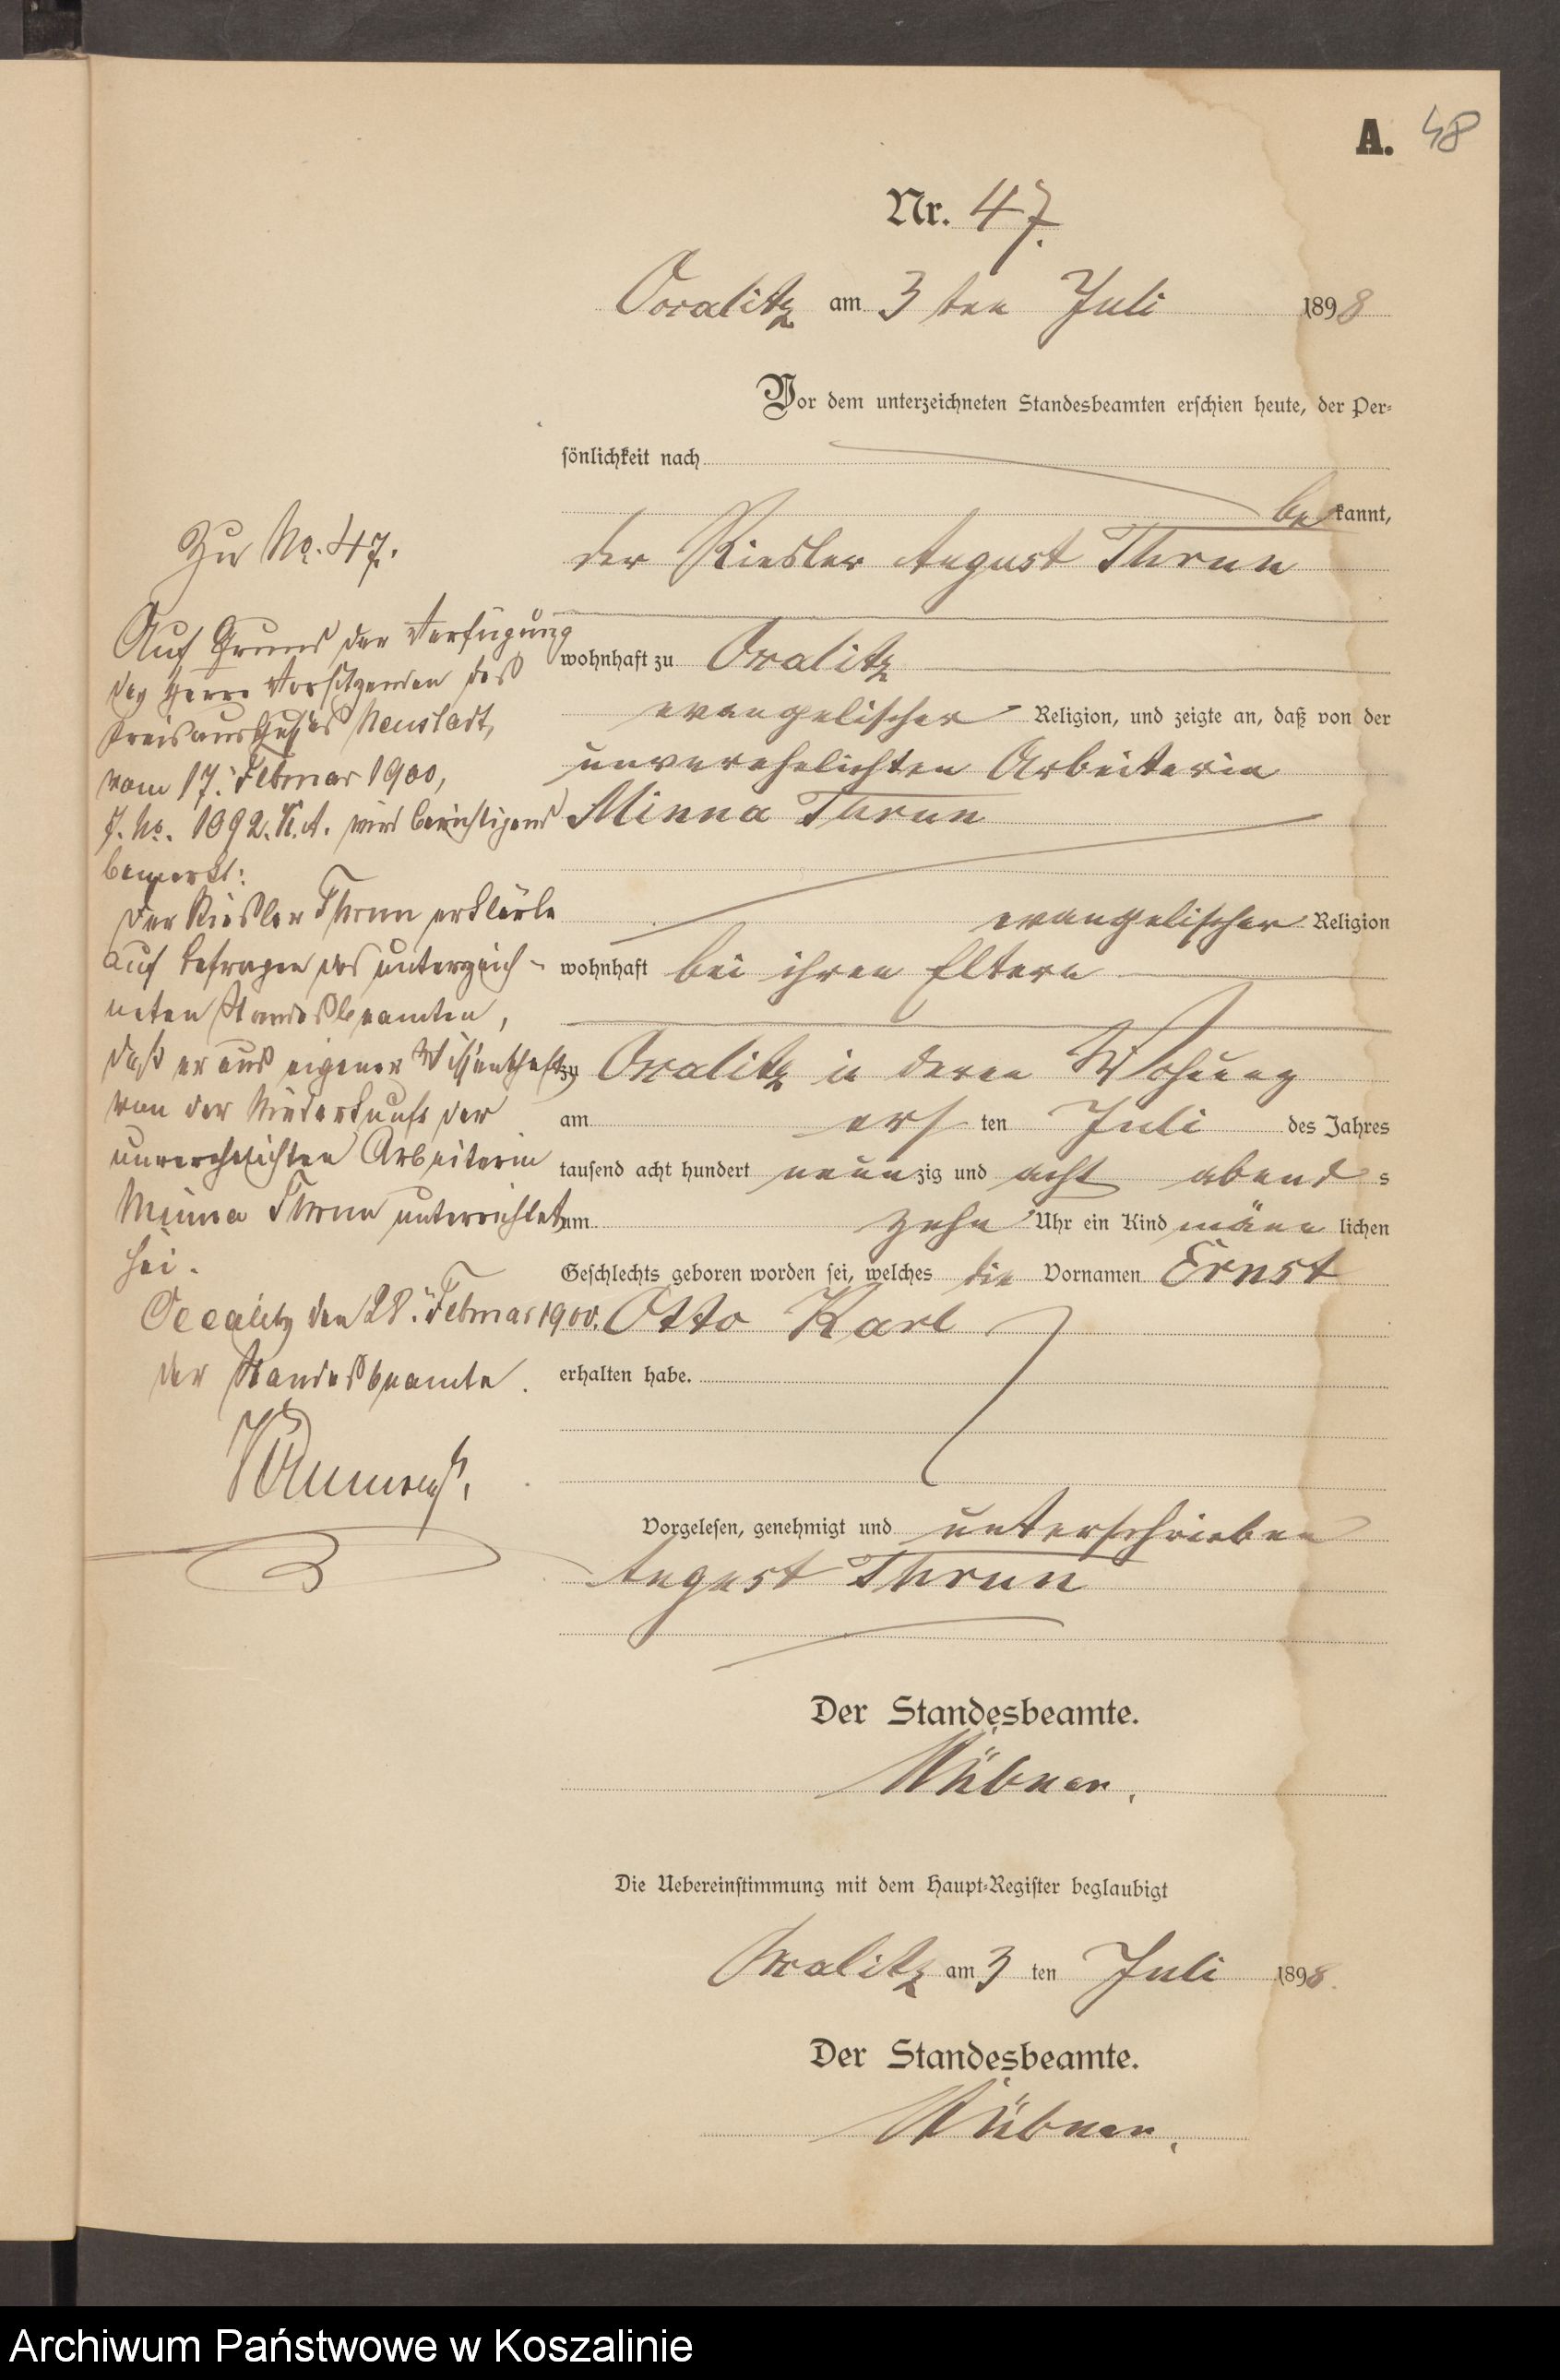 A. 48
Nr. 47.
Occalitz am 3 ten Juli 1898
Vor dem unterzeichneten Standesbeamten erschien heute, der Per-
sönlichkeit nach
be kannt,
der Kiesler August Thrun
wohnhaft zu Occalitz
evangelischer Religion, und zeigte an, daß von der
unverehelichten Arbeiterin
Minna Thrun
evangelischer Religion
wohnhaft bei ihren Eltern
zu Occalitz in deren Wohnung
am ers ten Juli des Jahres
tausend acht hundert neun zig und acht abend s
um zehn Uhr ein Kind männ lichen
Geschlechts geboren worden sei, welches die Vornamen Ernst
Otto Karl
erhalten habe.
Vorgelesen, genehmigt und unterschrieben
August Thrun
Der Standesbeamte.
Die Uebereinstimmung mit dem Haupt-Register beglaubigt
Occalitz am 3 ten Juli 1898.
Der Standesbeamte.
Zu No. 47.
Auf Grund der Verfügung
des Herrn Vorsitzenden des
Kreisausschusses Neustadt,
vom 17. Februar 1900,
J. No. 1092. K. A. wird berichtigend
bemerkt:
Der Kiesler Thrun erklärte
auf Befragen des unterzeich-
neten Standesbeamten,
daß er aus eigener Wissenschaft
von der Niederkunft der
unverehelichten Arbeiterin
Minna Thrun unterrichtet
sei.
Occalitz den 28. Februar 1900.
Der Standesbeamte.
Archiwum Państwowe w Koszalinie